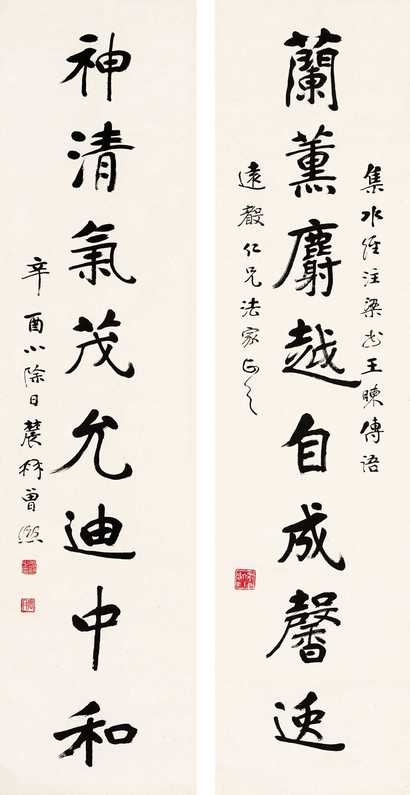 集水經注梁書王暕傳語
蘭薰麝越自成馨逸
遠仁兄法家正之
神清氣茂允迪中和
辛酉小除日農髯曾熙